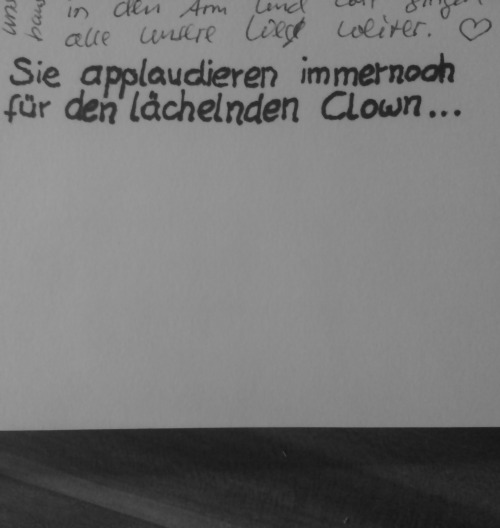 in den Arm und wir gingen
alle unsere Wege weiter. ♡
Sie applaudieren immernoch
für den lächelnden Clown...
uns